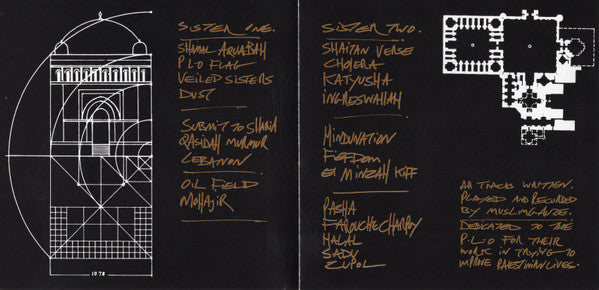 SISTER ONE.
SHAMAL AQUABAH
P L O FLAG
VEILED SISTERS
DUST
SUBMIT TO SHARIA
QASIDAH MURMUR
LEBANON
OIL FIELD
MOHAJIR
10.78
SISTER TWO.
SHAITAN VERSE
CHOLERA
KATYUSHA
INGRESWAHAH
MINDUNATION
FIEFDOM
EL MINZAH KIFF
PASHA
FAROUCHE CHARBY
HALAL
SADV
ALL TRACKS WRITTEN.
PLAYED AND RECORDED
BY MUSLIMGAUZE.
DEDICATED TO THE
P.L.O FOR THEIR
WORK IN TRYING TO
IMPROVE PALESTINIAN LIVES.